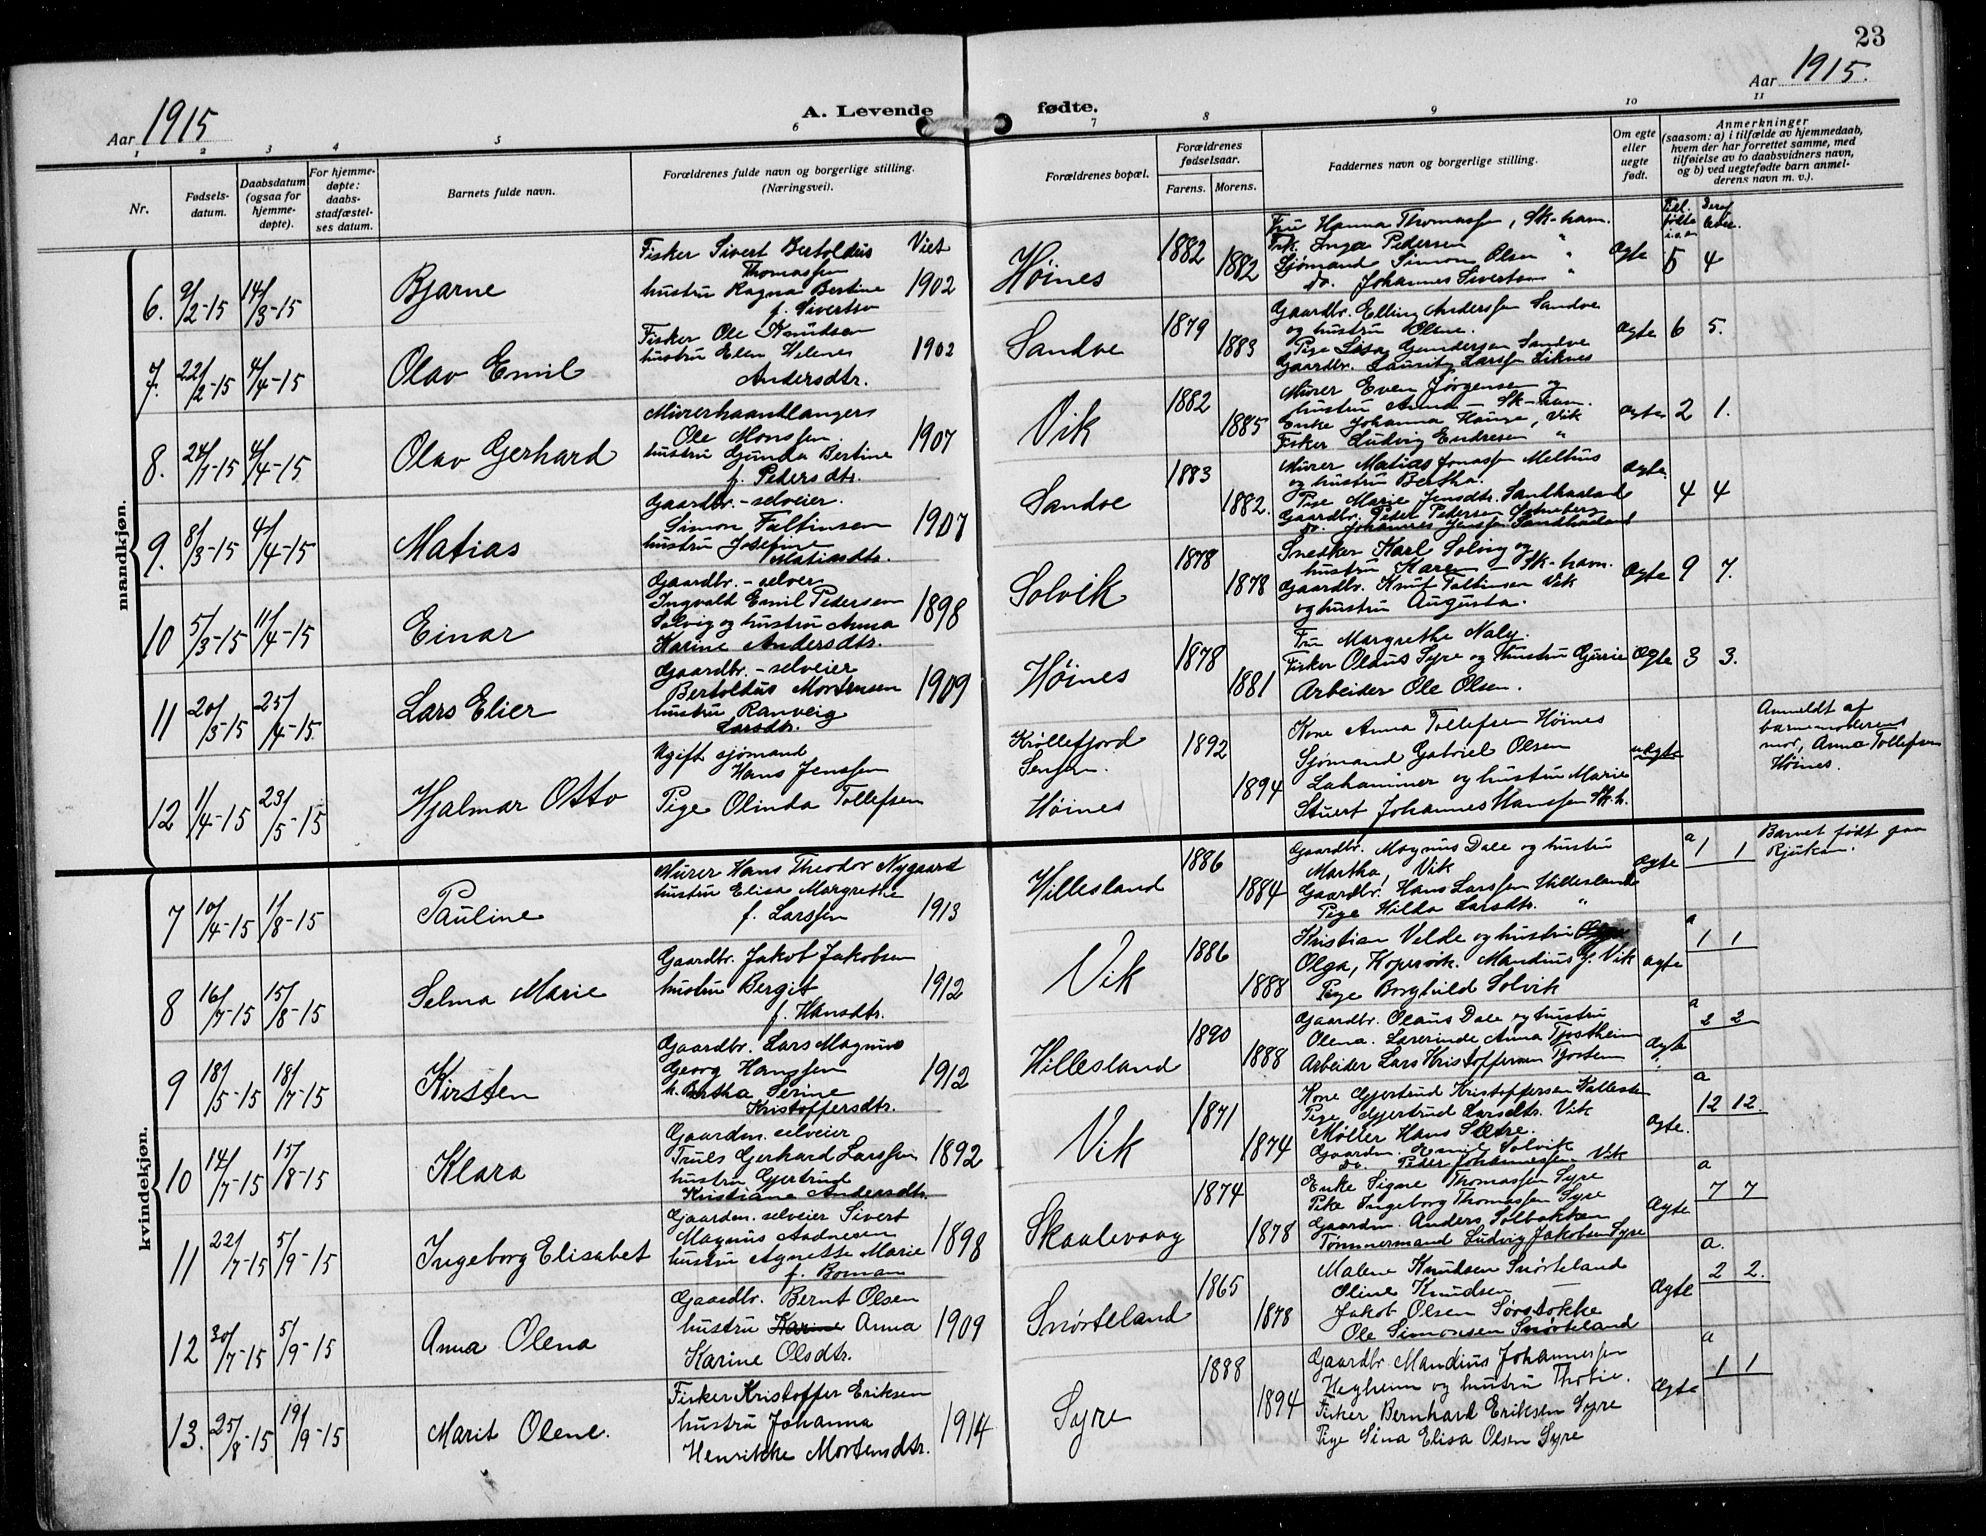 23
Aar 1915
A. Levende fødte.
Aar 1915.
1 2 3 4 5 6 7 8 9 10 11
Nr.
Fødsels-
datum.
Daabsdatum
(ogsaa for
hjemme-
døpte).
For hjemme-
døpte:
daabs-
stadfæstel-
ses datum.
Barnets fulde navn.
Forældrenes fulde navn og borgerlige stilling.
(Næringsvei).
Forældrenes bopæl.
Forældrenes
fødselsaar.
Farens. Morens.
Faddernes navn og borgerlige stilling.
Om egte
eller
uegte
født.
Anmerkninger
(saasom: a) i tilfælde av hjemmedaab,
hvem der har forrettet samme, med
tilføielse av to daabsvidners navn,
og b) ved uegtefødte barn anmel-
derens navn m. v.).
mandkjøn.
6. 9/2-15 14/3-15 Bjarne
Fisker Sivert Bertoldus Viet
Thomassen
hustru Ragna Bertine 1902
f. Sivertsen
Høines 1882 1882
Fru Hanna Thomassen, Sk-havn.
Frk. Inga Pedersen "
Sjømand Simon Olsen "
do. Johannes Sivertsen "
ægte 5 4
7. 22/2-15 4/4-15 Olav Emil
Fisker Ole Knudsen
hustru Elen Helene 1902
Andersdtr.
Sandve 1879 1883
Gaardbr. Elling Anderssen Sandve
og hustru Olene.
Pige Lisa Gundersen Sandve
Gaardbr. Lauritz Larssen Liknes
ægte 6 5.
8. 24/1-15 4/4-15 Olav Gerhard
Murerhaandlangers
Ole Monssen 1907
hustru Gunda Bertine
f. Pedersdtr.
Vik 1882 1885
Murer Even Jørgensen og
hustru Anna - Sk-havn.
Enke Johanna Hauge, Vik
Fisker Ludvig Endresen "
ægte 2 1.
9. 8/3-15 4/4-15 Matias
Gaardbr. - selveier.
Simon Faltinsen 1907
hustru Josefine
Matiasdtr.
Sandve 1883 1882.
Murer Matias Jonassen Melhus
og hustru Bertha.
Pige Marie Jensdtr. Sandhaaland
Gaardbr. Peder Pedersen
do. Johannes Jenssen Sandhaaland
ægte 4 4
10 5/3-15 11/4-15 Einar
Gaardbr. - selveier
Ingvald Emil Pedersen 1898
Solvig og hustru Anna
Karine Andersdtr.
Solvik 1878 1878
Snedker Karl Solvig og
hustru Karen - Sk-havn.
Gaardbr. Knut Faltinsen Vik
og hustru Augusta.
ægte 9 7.
11 20/3-15 25/4-15 Lars Elier
Gaardbr. - selveier
Bertoldus Mortensen 1909
hustru Ranveig
Larsdtr.
Høines 1878 1881
Fru Margrethe Naly.
Fisker Olaus Syre og hustru Gurie
Arbeider Ole Olsen.
ægte 3 3.
12 1/4-15 23/5-15 Hjalmar Otto
Ugift sjømand
Hans Jenssen
Pige Olinda Tollefsen
Krøllefjord
Senjen.
Høines
1892 1894
Kone Anna Tollefsen Høines
Sjømand Gabriel Olsen
Lahammer og hustru Marie
Stuert Johannes Hanssen Sk.h.
uægte
Anmeldt af
barnemoderens
mor, Anna Tollefsen
Høines.
kvindekjøn.
7 10/4-15 1/8-15 Pauline
Murer Hans Theodor Nygaard
hustru Elisa Margrethe
f. Larssen 1913
Hillesland 1886 1884
Gaardbr. Magnus Dale og hustru
Martha, Vik
Gaardbr. Hans Larssen Hillesland
Pige Hilda Larsdtr. "
ægte a 1 1
Barnet født paa
Rjukan.
8 16/7-15 15/8-15 Selma Marie
Gaardbr. Jakob Jakobsen
hustru Bergit 1912
f. Hansdtr.
Vik 1886 1888
Kristian Velde og hustru
Olga, Kopervik. Mandius J. Vik
Pige Borghild Solvik
ægte a 1 1
9 18/5-15 18/7-15 Kirsten
Gaardbr. Lars Magnus
Georg Hanssen 1912
h. Bertha Serine
Kristoffersdtr.
Hillesland 1890 1888
Gaardbr. Olaus Dale og hustru
Olena. Lærerinde Anna Tjostheim
Arbeider Lars Kristoffersen
ægte a 2 2
10 14/7-15 15/8-15 Klara
Gaardm. selveier
Truls Gerhard Larssen 1892
hustru Gjertrud
Kristiane Andersdtr.
Vik 1871 1874
Kone Gjertrud Kristoffersen
Pige Gjertrud Larsdtr. Vik
Møller Hans Sætre.
Gaardm. Emil Solvik
do. Peder Johannessen Vik
ægte. a 12 12.
11 22/7-15 5/9-15 Ingeborg Elisabet
Gaardm. selveier Sivert
Magnus Aadnesen 1898
hustru Agnette Marie
f. Boman
Skaalevaag 1874 1878
Enke Signe Thomassen Syre
Pike Ingeborg Thomassen Syre
Gaardm. Anders Solbakken
Tømmermand Ludvig Jakobsen Syre
ægte a 7 7
12 30/7-15 5/9-15 Anna Olena
Gaardbr. Bernt Olsen
hustru Karine Anna 1909
Karine Olsdtr.
Snørteland 1865 1878
Malene Knudsen Snørteland
Oline Knudsen —
Jakob Olsen Sørstokke
Ole Simonsen Snørteland
ægte a. 2 2.
13. 25/8-15 19/9-15 Marit Olene.
Fisker Kristoffer Eriksen
hustru Johanna 1914
Henrikke Mortensdtr.
Syre 1888 1894
Gaardbr Mandius Johannessen
Hegheim og hustru Thobie.
Fisker Bernhard Eriksen Syre
Pige Sina Elisa Olsen Syre
ægte a 1 1